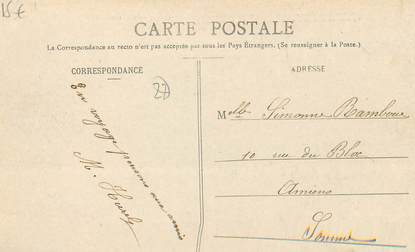 15€
CARTE POSTALE
La Correspondance au recto n'est pas acceptée par tous les Pays Étrangers. (Se renseigner à la Poste.)
CORRESPONDANCE
ADRESSE
27
En voyage pensons aux amis
M.
Melle Simonne
10 rue du Bloc
Amiens
Somme